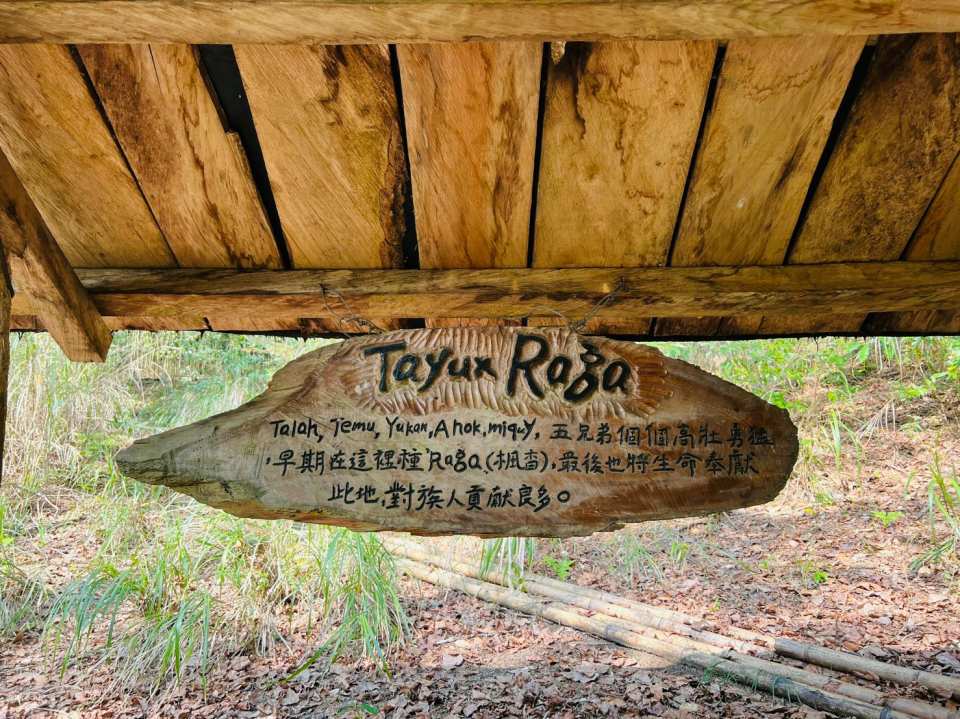 Tayux Raga
Talah, Temu, Yukan, Ahok, miquy, 五兄弟個個高壯勇猛
,早期在這裡種"Raga(楓香),最後也將生命奉獻
此地,對族人貢獻良多。